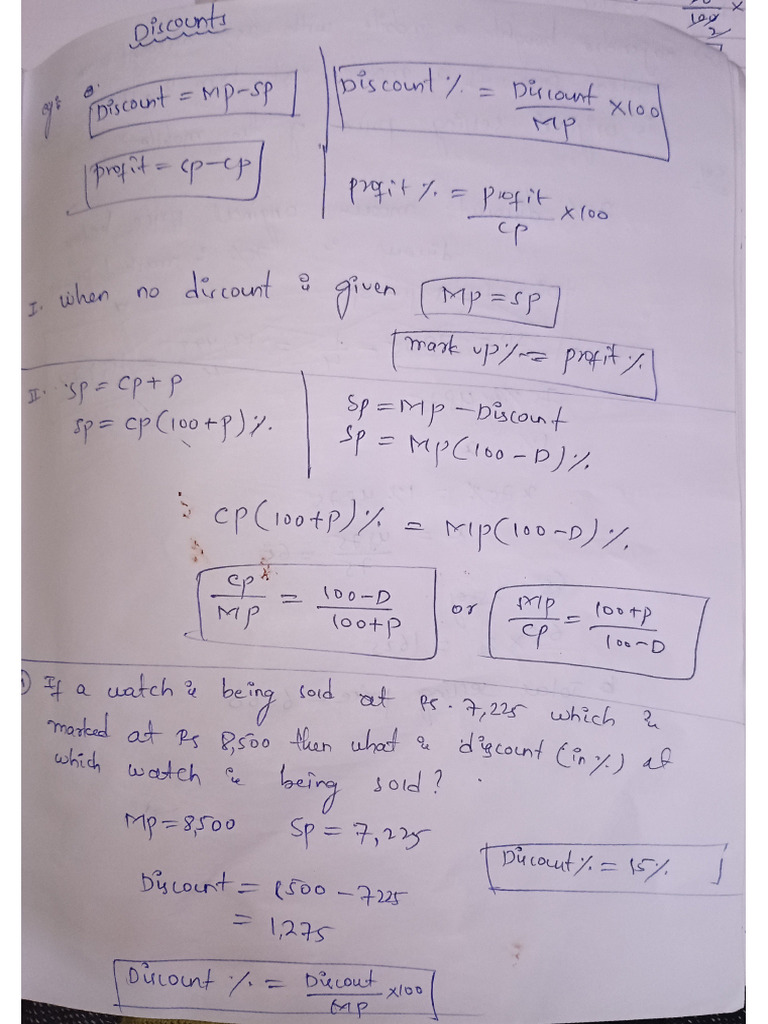 Discounts
eg:
Discount = MP-SP
Discount % = Discount/MP ×100
profit = CP-CP
profit % = profit/CP ×100
I. when no discount is given MP = SP
mark up % = profit %
II. SP = CP + P
SP = CP(100+P)%.
SP = MP - Discount
SP = MP(100-D)%.
CP(100+P)% = MP(100-D)%.
CP/MP = 100-D/100+P or MP/CP = 100+P/100-D
If a watch is being sold at Rs. 7,225 which is
marked at Rs 8,500 then what is discount (in %) at
which watch is being sold?
MP = 8,500 SP = 7,225
Discount % = 15%
Discount = 8500 - 7225
= 1,275
Discount % = Discout/MP ×100